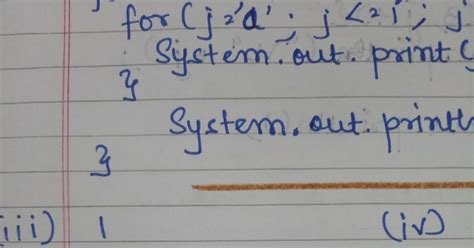 for (j='a'; j<=i; j
System.out.print(j
}
System.out.println
}
iii) 1 (iv)